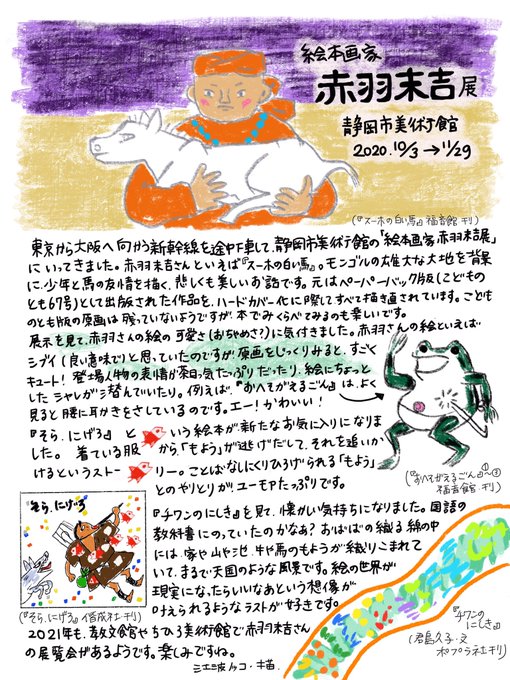 絵本画家
赤羽末吉展
静岡市美術館
2020.10/3→11/29
(『スーホの白い馬』福音館刊)
東京から大阪へ向かう新幹線を途中下車して、静岡市美術館の「絵本画家赤羽末吉展」
にいってきました。赤羽末吉さんといえば『スーホの白い馬』。モンゴルの雄大な大地を背景
に、少年と馬の友情を描く、悲しくも美しいお話です。元はペーパーバック版(こどもの
とも67号)として出版された作品を、ハードカバー化に際してすべて描き直されています。こども
のとも版の原画は残っていないようですが、本でみくらべてみるのも楽しいです。
展示を見て、赤羽さんの絵の可愛さ(おちゃめさ?)に気付きました。赤羽さんの絵といえば
シブイ(良い意味で)と思っていたのですが原画をじっくりみると、すごく
キュート! 登場人物の表情が茶目っ気たっぷりだったり、絵にちょっと
したシャレがひそんでいたり。例えば、『おへそがえるごん』は、よく
見ると腰に耳かきをさしているのです。エー!かわいい!
『そら、にげろ』という絵本が新たなお気に入りになりま
した。着ている服から、「もよう」が逃げだして、それを追いか
けるというストーリー。ことばなしにくりひろげられる「もよう」
とのやりとりが、ユーモアたっぷりです。
(『おへそがえるごん』①〜③
福音館刊)
そら、にげろ
(『そら、にげろ』偕成社刊)
『チワンのにしき』を見て、懐かしい気持ちになりました。国語の
教科書にのっていたのかなあ?おばばの織る錦の中
には、家や山や池、牛や馬のもようが織りこまれて
いて、まるで天国のような風景です。絵の世界が
現実になったらいいなあという想像が
叶えられるようなラストが好きです。
『チワンの
にしき』
(君島久子・文
ポプラ社刊)
2021年も、教文館やちひろ美術館で赤羽末吉さん
の展覧会があるようです。楽しみですね。